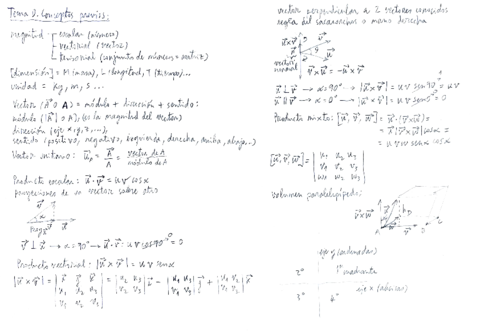 Tema 0. Conceptos previos:
magnitud: escalar (número)
vectorial (vector)
tensorial (conjuntos de números = matriz)
[dimensión] = M (masa), L (longitud), T (tiempo)...
unidad = kg, m, s...
Vector (A⃗ o A) = módulo + dirección + sentido:
módulo (|A⃗| o A), (es la magnitud del vector)
dirección (eje x, y, z, ...),
sentido (positivo, negativo, izquierda, derecha, arriba, abajo...)
Vector unitario: u⃗ₐ = A⃗/A = vector de A/módulo de A
Producto escalar: u⃗ · v⃗ = u v cos α
proyecciones de un vector sobre otro
v⃗ ⊥ u⃗ → α = 90° → u⃗ · v⃗ = u v cos 90° = 0
Producto vectorial: |u⃗ × v⃗| = u v sen α
vector perpendicular a 2 vectores conocidos
regla del sacacorchos o mano derecha
u⃗ × v⃗
vector normal
u⃗ × v⃗ = -v⃗ × u⃗
u⃗ ⊥ v⃗ → α = 90° → |u⃗ × v⃗| = u v sen 90° = u v
u⃗ ∥ v⃗ → α = 0° → |u⃗ × v⃗| = u v sen 0° = 0
Producto mixto: [u⃗, v⃗, w⃗] = u⃗ · (v⃗ × w⃗) =
= u⃗ |v⃗ × w⃗| cos α =
= u v w sen α cos α
[u⃗, v⃗, w⃗] = | u₁ u₂ u₃ |
| v₁ v₂ v₃ |
| w₁ w₂ w₃ |
volumen paralelepípedo:
eje y (ordenadas)
2º
1er cuadrante
eje x (abscisas)
3º
4º